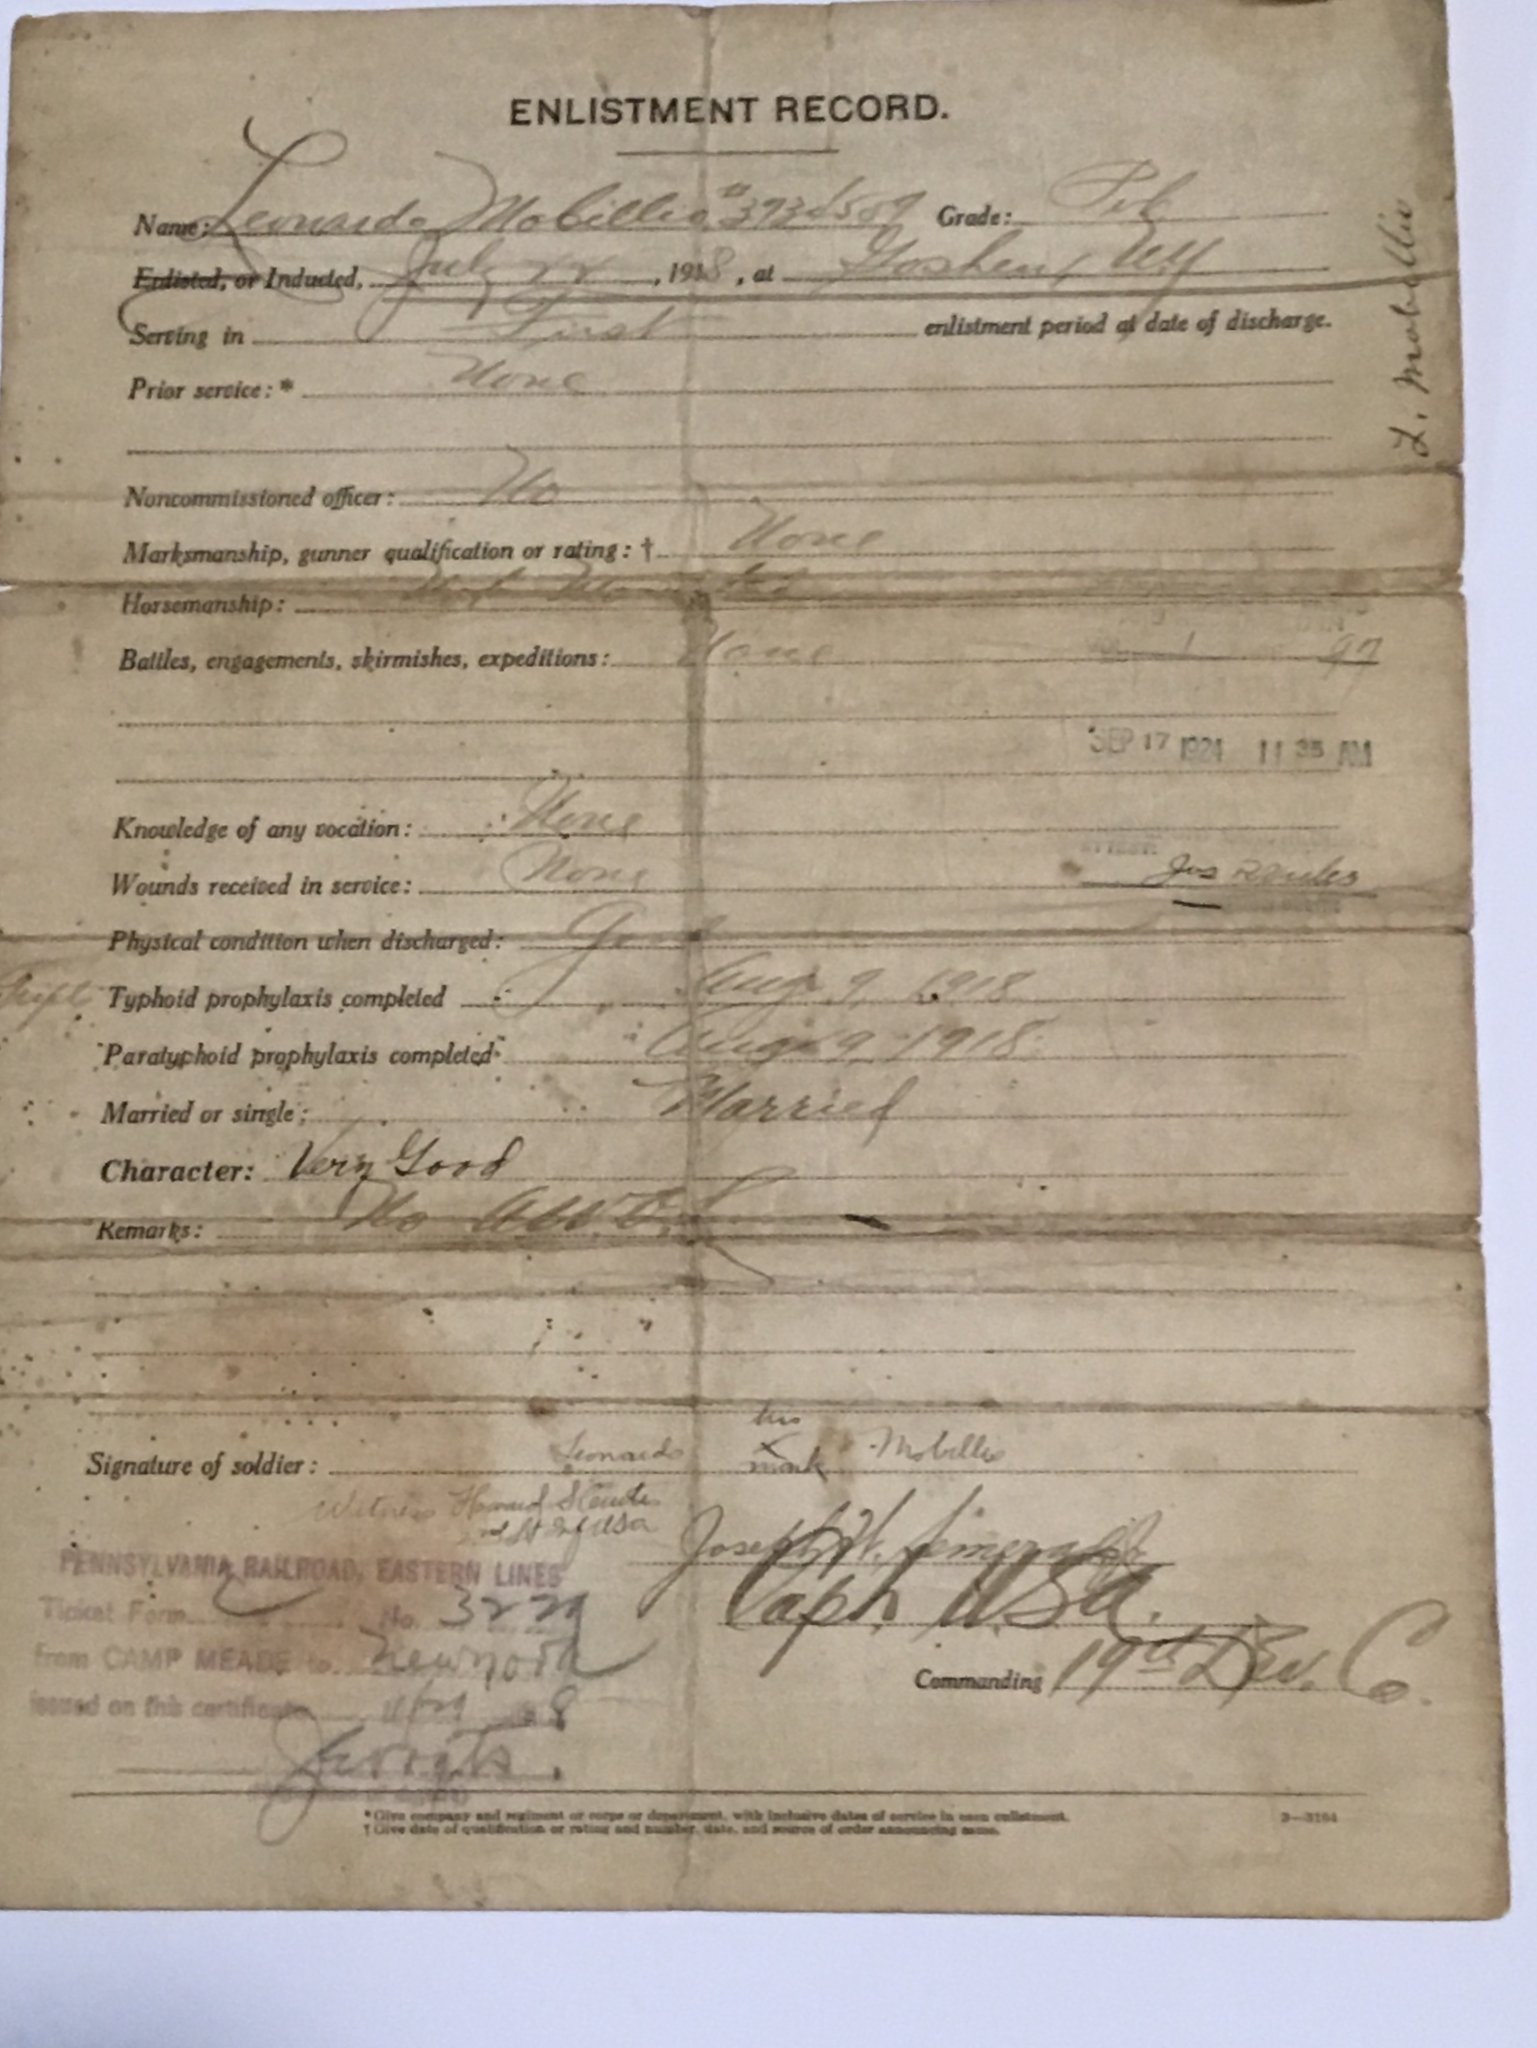 ENLISTMENT RECORD.
Name: Leonardo Mobillio # Grade: Pvt
Enlisted, or Inducted, July 22, 1918, at Goshen, NY
Serving in First enlistment period at date of discharge.
Prior service: * None
L. Mobillio
Noncommissioned officer: No
Marksmanship, gunner qualification or rating: † None
Horsemanship: Not Mounted
Battles, engagements, skirmishes, expeditions: None
1 97
SEP 17 1924 11 35 AM
Knowledge of any vocation: None
Wounds received in service: None
ATTEST: Jos
Physical condition when discharged: Good
Typhoid prophylaxis completed Aug. 9, 1918
Paratyphoid prophylaxis completed Aug. 9, 1918
Married or single: Married
Character: Very Good
Remarks: No A.W.O.L
Signature of soldier: Leonardo his X mark Mobillio
Witness Howard
2nd Lt Inf USA
Joseph W.
Capt. U.S.A.
Commanding 19th Dev. Co.
PENNSYLVANIA RAILROAD, EASTERN LINES
Ticket Form No. 3229
from CAMP MEADE to
issued on this certificate 8
* Give company and regiment or corps or department, with inclusive dates of service in each enlistment.
† Give date of qualification or rating and number, date, and source of order announcing same.
3—3164